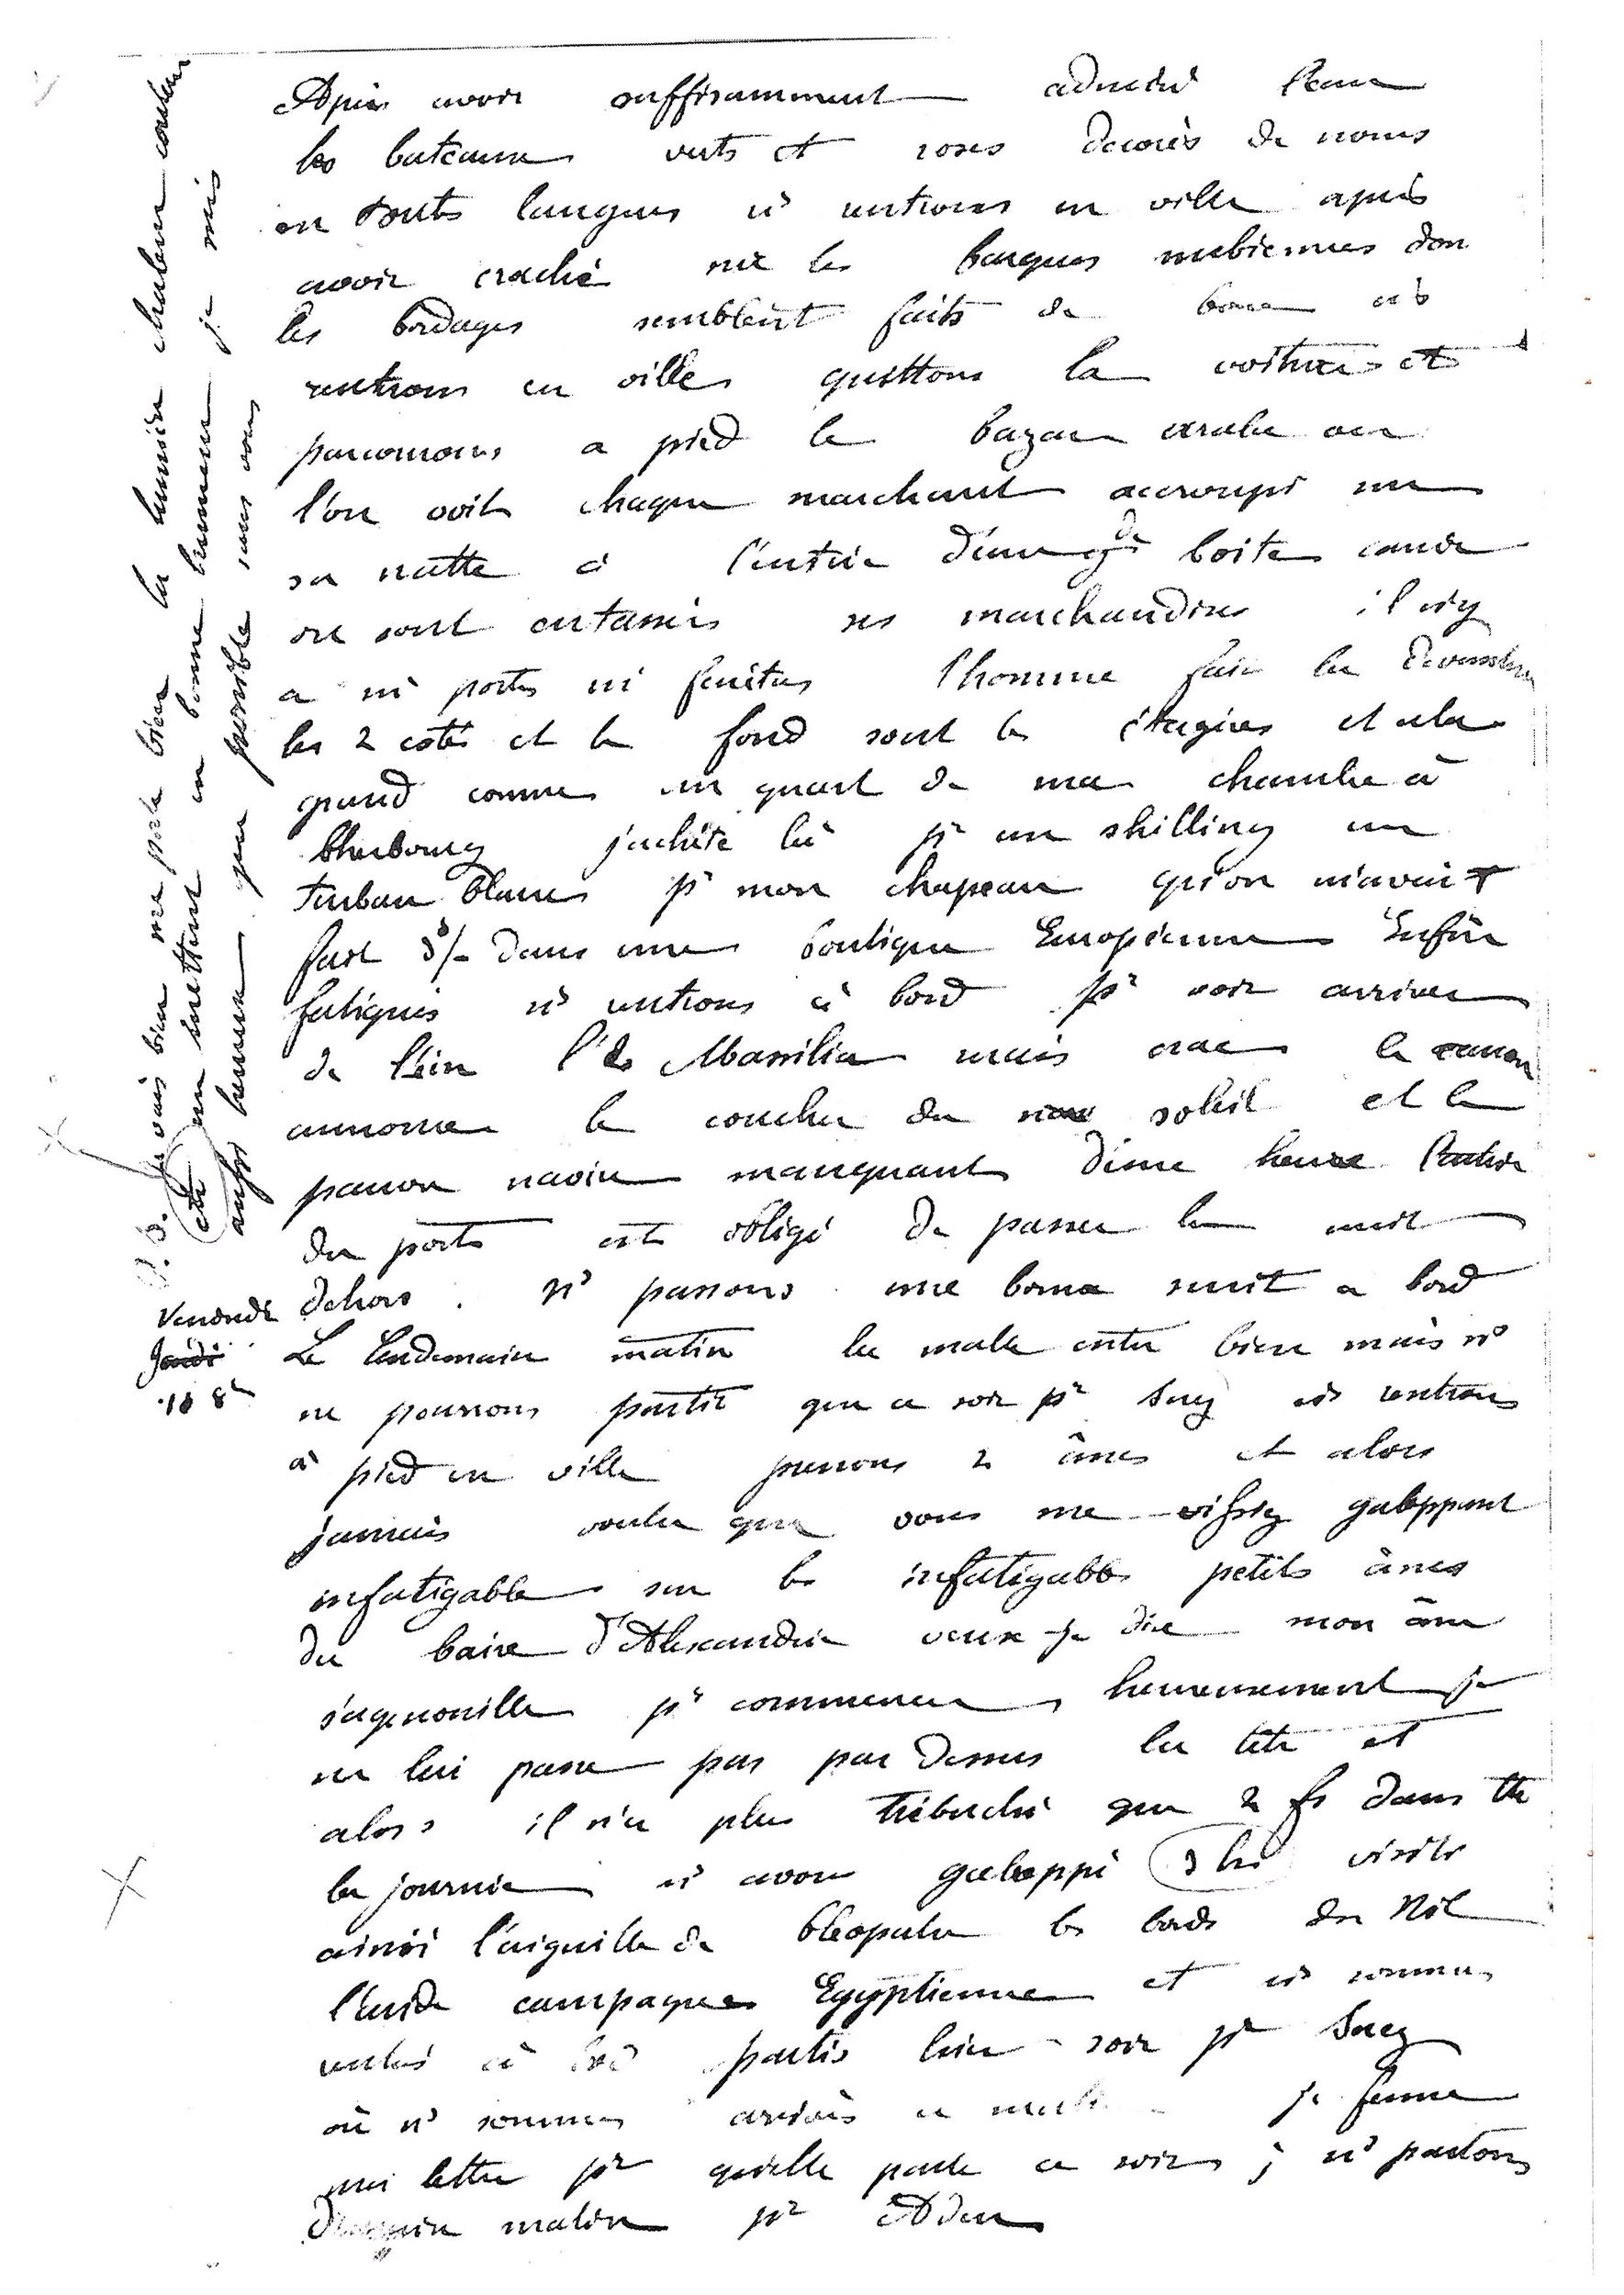 Après avoir suffisamment admiré
les bateaux verts et roses décorés de noms
en touts langues ns rentrons en ville après
avoir craché sur les barques nubiennes don
les bordages semblent faits de boue ns
rentrons en ville quittons la voiture et
parcourons a pied le bazar arabe ou
l'on voit chaque marchand accroupi sur
sa natte à l'entrée d'une gde boite carrée
ou sont entassés ses marchandises il n'y
a ni portes ni fenêtres l'homme fait la devanture
les 2 cotés et le fond sont les étagères et cela
grand comme un quart de ma chambre à
Cherbourg j'achète là pr un shilling un
turban blanc pr mon chapeau qu'on m'avait
fait 3/- dans une boutique Européenne Enfin
fatigués ns rentrons à bord pr voir arriver
de loin le Massilia mais crac le canon
annonce le coucher du soleil et le
pauvre navire manquant d'une heure l'entrée
du port est obligé de passer la nuit
dehors. ns passons une bonne nuit a bord
Vendredi
Jeudi
18 8h
Le lendemain matin la malle entre bien mais ns
ne pouvons partir que ce soir pr Suez ns rentrons
à pied en ville prenons 2 ânes et alors
jamais voulu que vous me vissiez galoppant
infatigable sur les infatigables petits ânes
du Caire d'Alexandrie veux je dire mon âne
s'agenouille pr commencer, heureusement je
ne lui passe pas par dessus la tête et
alors il n'a plus trébuché que 2 fs dans tte
la journée ns avons galoppé 3 hes visité
ainsi l'aiguille de Cléopatre les bords du Nil
campagne Egyptienne et ns sommes
rentrés à bord partis hier soir pr Suez
où ns sommes arrivés ce matin je ferme
ma lettre pr qu'elle parte ce soir ; ns partons
demain matin pr Aden
P.S. Je vais bien me porte bien la lumière chaleur couleur
etc me mettent en bonne humeur je suis
aussi heureux que possible sans vous